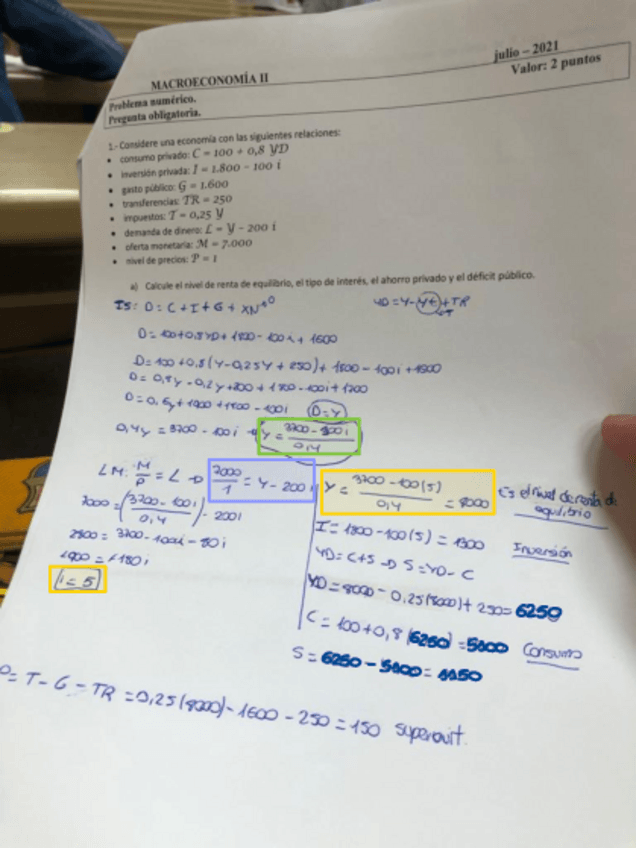 MACROECONOMÍA II
julio – 2021
Problema numérico.
Valor: 2 puntos
Pregunta obligatoria.
1.- Considere una economía con las siguientes relaciones:
• consumo privado: C = 100 + 0,8 YD
• inversión privada: I = 1.800 – 100 i
• gasto público: G = 1.600
• transferencias: TR = 250
• impuestos: T = 0,25 Y
• demanda de dinero: L = Y – 200 i
• oferta monetaria: M = 7.000
• nivel de precios: P = 1
a) Calcule el nivel de renta de equilibrio, el tipo de interés, el ahorro privado y el déficit público.
IS: D = C + I + G + XN
YD = Y - Yt + TR
D = 100 + 0,8YD + 1800 - 100i + 1600
D = 100 + 0,8(Y - 0,25Y + 250) + 1800 - 100i +
D = 0,8Y - 0,2Y +
D = 0,6Y + - 100i (D = Y)
0,4Y = 3700 - 100i → Y = 3700 - 100i / 0,4
LM: M/P = L → 7000/1 = Y - 200i
Y = 3700 - 100(5) / 0,4 = 8000 Es el nivel de renta de equilibrio
7000 = (3700 - 100i / 0,4) - 200i
I = 1800 - 100(5) = 1300 Inversión
2800 = 3700 - 100i - 80i
YD = C + S → S = YD - C
180i
YD = 8000 - 0,25(8000) + 250 = 6250
i = 5
C = 100 + 0,8(6250) = 5100 Consumo
S = 6250 - 5100 = 1150
= T - G - TR = 0,25(8000) - 1600 - 250 = 150 superavit.